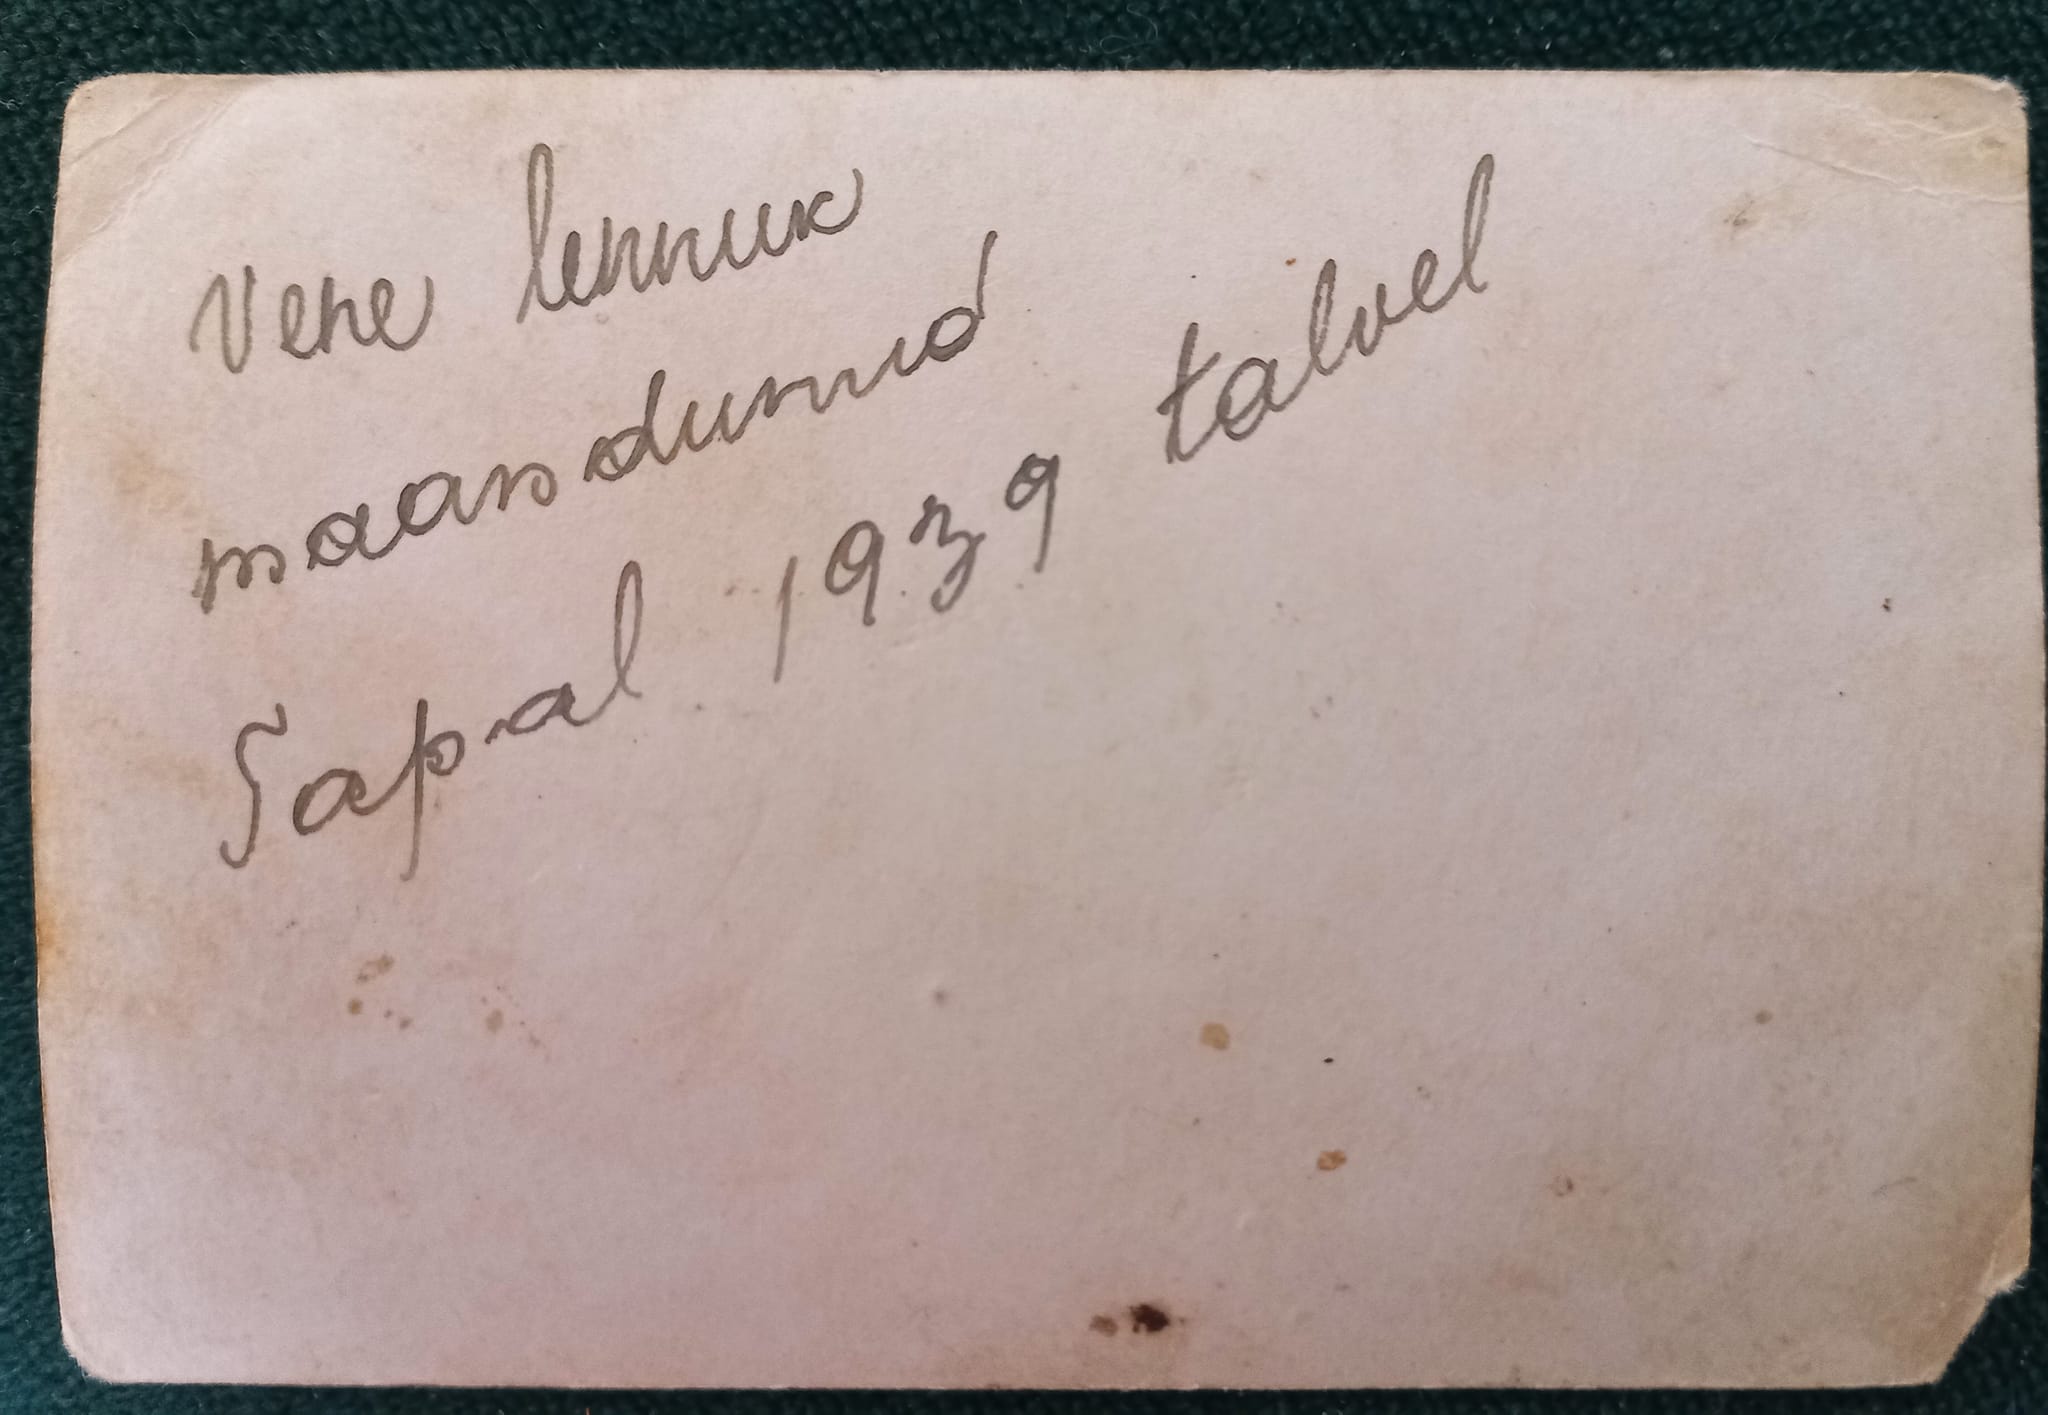 Vene lennuk
maandunud
Sapal 1939 talvel